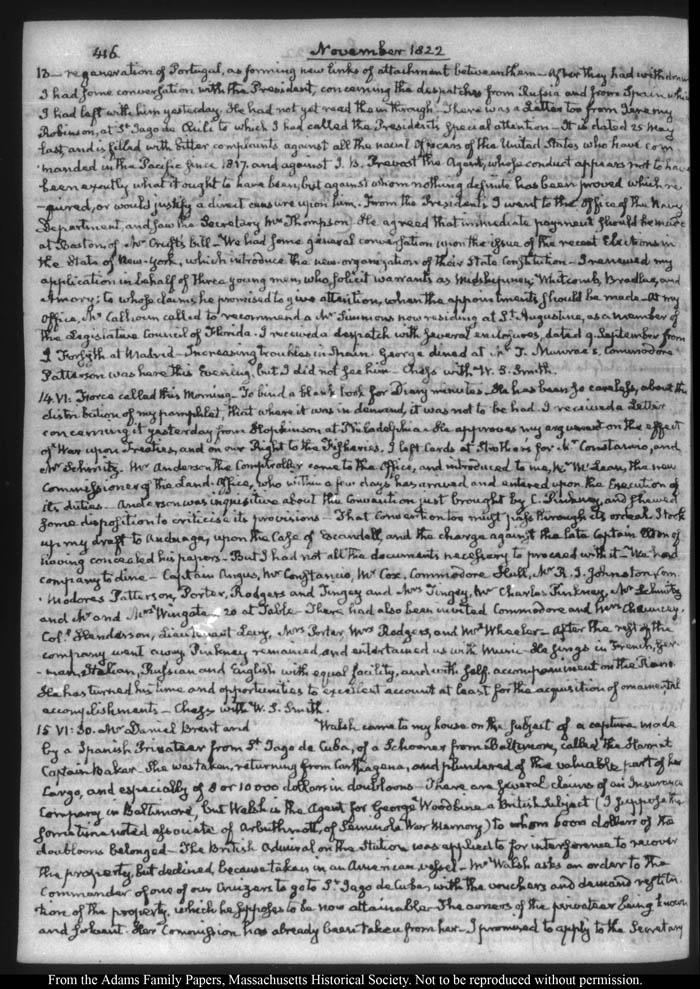 416
November 1822
13 — regeneration of Portugal, as forming new links of attachment between them — After they had withdrawn
I had some conversation with the President, concerning the despatches from Russia and from Spain which
I had left with him yesterday. He had not yet read them through. There was a Letter too from Jeremy
Robinson, at St. Iago de Chile to which I had called the President's special attention — It is dated 25 May
last, and is filled with bitter complaints against all the naval Officers of the United States who have com
manded in the Pacific since 1817. and against J. B. Prevost the Agent, whose conduct appears not to have
been exactly what it ought to have been, but against whom nothing definite has been proved which re
quired, or would justify a direct censure upon him. From the President's I went to the Office of the Navy
Department, and saw the Secretary Mr Thompson. He agreed that immediate payment should be made
at Boston of Mr Cruft's bill — We had some general conversation upon the issue of the recent Elections in
the State of New-York, which introduce the new organization of their State Constitution — I renewed my
application in behalf of three young men, who solicit warrants as Midshipmen; Whitcomb, Bradlee, and
Amory; to whose claims he promised to give attention, when the appointments should be made — At my
Office, Mr Calhoun called to recommend a Mr Simmons now residing at St. Augustine, as a member of
the Legislative Council of Florida. I received a despatch with several enclosures, dated 9. September from
J Forsyth at Madrid — Increasing troubles in Spain. George dined at Mr J. Munroe's. Commodore
Patterson was here this Evening, but I did not see him — Chess with W. S. Smith.
14. VI: Force called this Morning — To bind a blank book for Diary minutes — He has been so careless, about the
distribution of my pamphlet, that where it was in demand, it was not to be had. I received a Letter
concerning it yesterday from Hopkinson at Philadelphia — He approves my argument on the effect
of War upon Treaties, and on our Right to the Fisheries. I left Cards at Strother's for Mr Constancio, and
Mr Schmitz. Mr Anderson the Comptroller came to the Office, and introduced to me, Mr McLean, the new
Commissioner of the Land-Office, who within a few days has arrived and entered upon the Execution of
its duties — Anderson was inquisitive about the Convention just brought by C. Pinkney, and shewed
some disposition to criticise its provisions — That Convention too must pass through its ordeal. I took
up my draft to Anduaga, upon the Case of Escandell, and the charge against the late Captain of
having concealed his papers — But I had not all the documents necessary to proceed with it — We had
company to dine — Captain Angus, Mr Constancio, Mr Cox, Commodore Hull, Mr R. J. Johnston, Com
modores Patterson, Porter, Rodgers and Tingey and Mrs Tingey, Mr Charles Pinkney, Mr Schmitz
and Mr and Mrs Wingate — 20 at Table — There had also been invited Commodore and Mrs Chauncey,
Coll. Henderson, Lieutenant Levy, Mrs Porter, Mrs Rodgers, and Mrs Wheeler — After the rest of the
company went away Pinkney remained, and entertained us with Music — He sings in French, Ger
man, Italian, Russian and English with equal facility, and with self accompaniment on the Piano.
He has turned his time and opportunities to excellent account at least for the acquisition of ornamental
accomplishments — Chess with W. S. Smith.
15 VI: 30. Mr Daniel Brent and Walsh came to my house on the subject of a capture made
by a Spanish Privateer from St. Iago de Cuba, of a Schooner from Baltimore, called the
Captain Baker. She was taken, returning from Carthagena, and plundered of the valuable part of her
Cargo, and especially of 8 or 10 000 dollars in doubloons — There are several claims of an Insurance
Company in Baltimore, but Walsh is the Agent for George Woodbine a British Subject (I suppose the
sometime noted associate of Arbuthnott, of Seminole War Memory) to whom 6000 dollars of the
doubloons belonged — The British Admiral on the Station was applied to for interference to recover
the property, but declined, because taken in an American vessel — Mr Walsh asks an order to the
Commander of one of our Cruizers to go to St. Iago de Cuba, with the vouchers and demand restitu
tion of the property, which he supposes to be now attainable. The owners of the privateer being known
and solvent. Her Commission has already been taken from her — I promised to apply to the Secretary
From the Adams Family Papers, Massachusetts Historical Society. Not to be reproduced without permission.